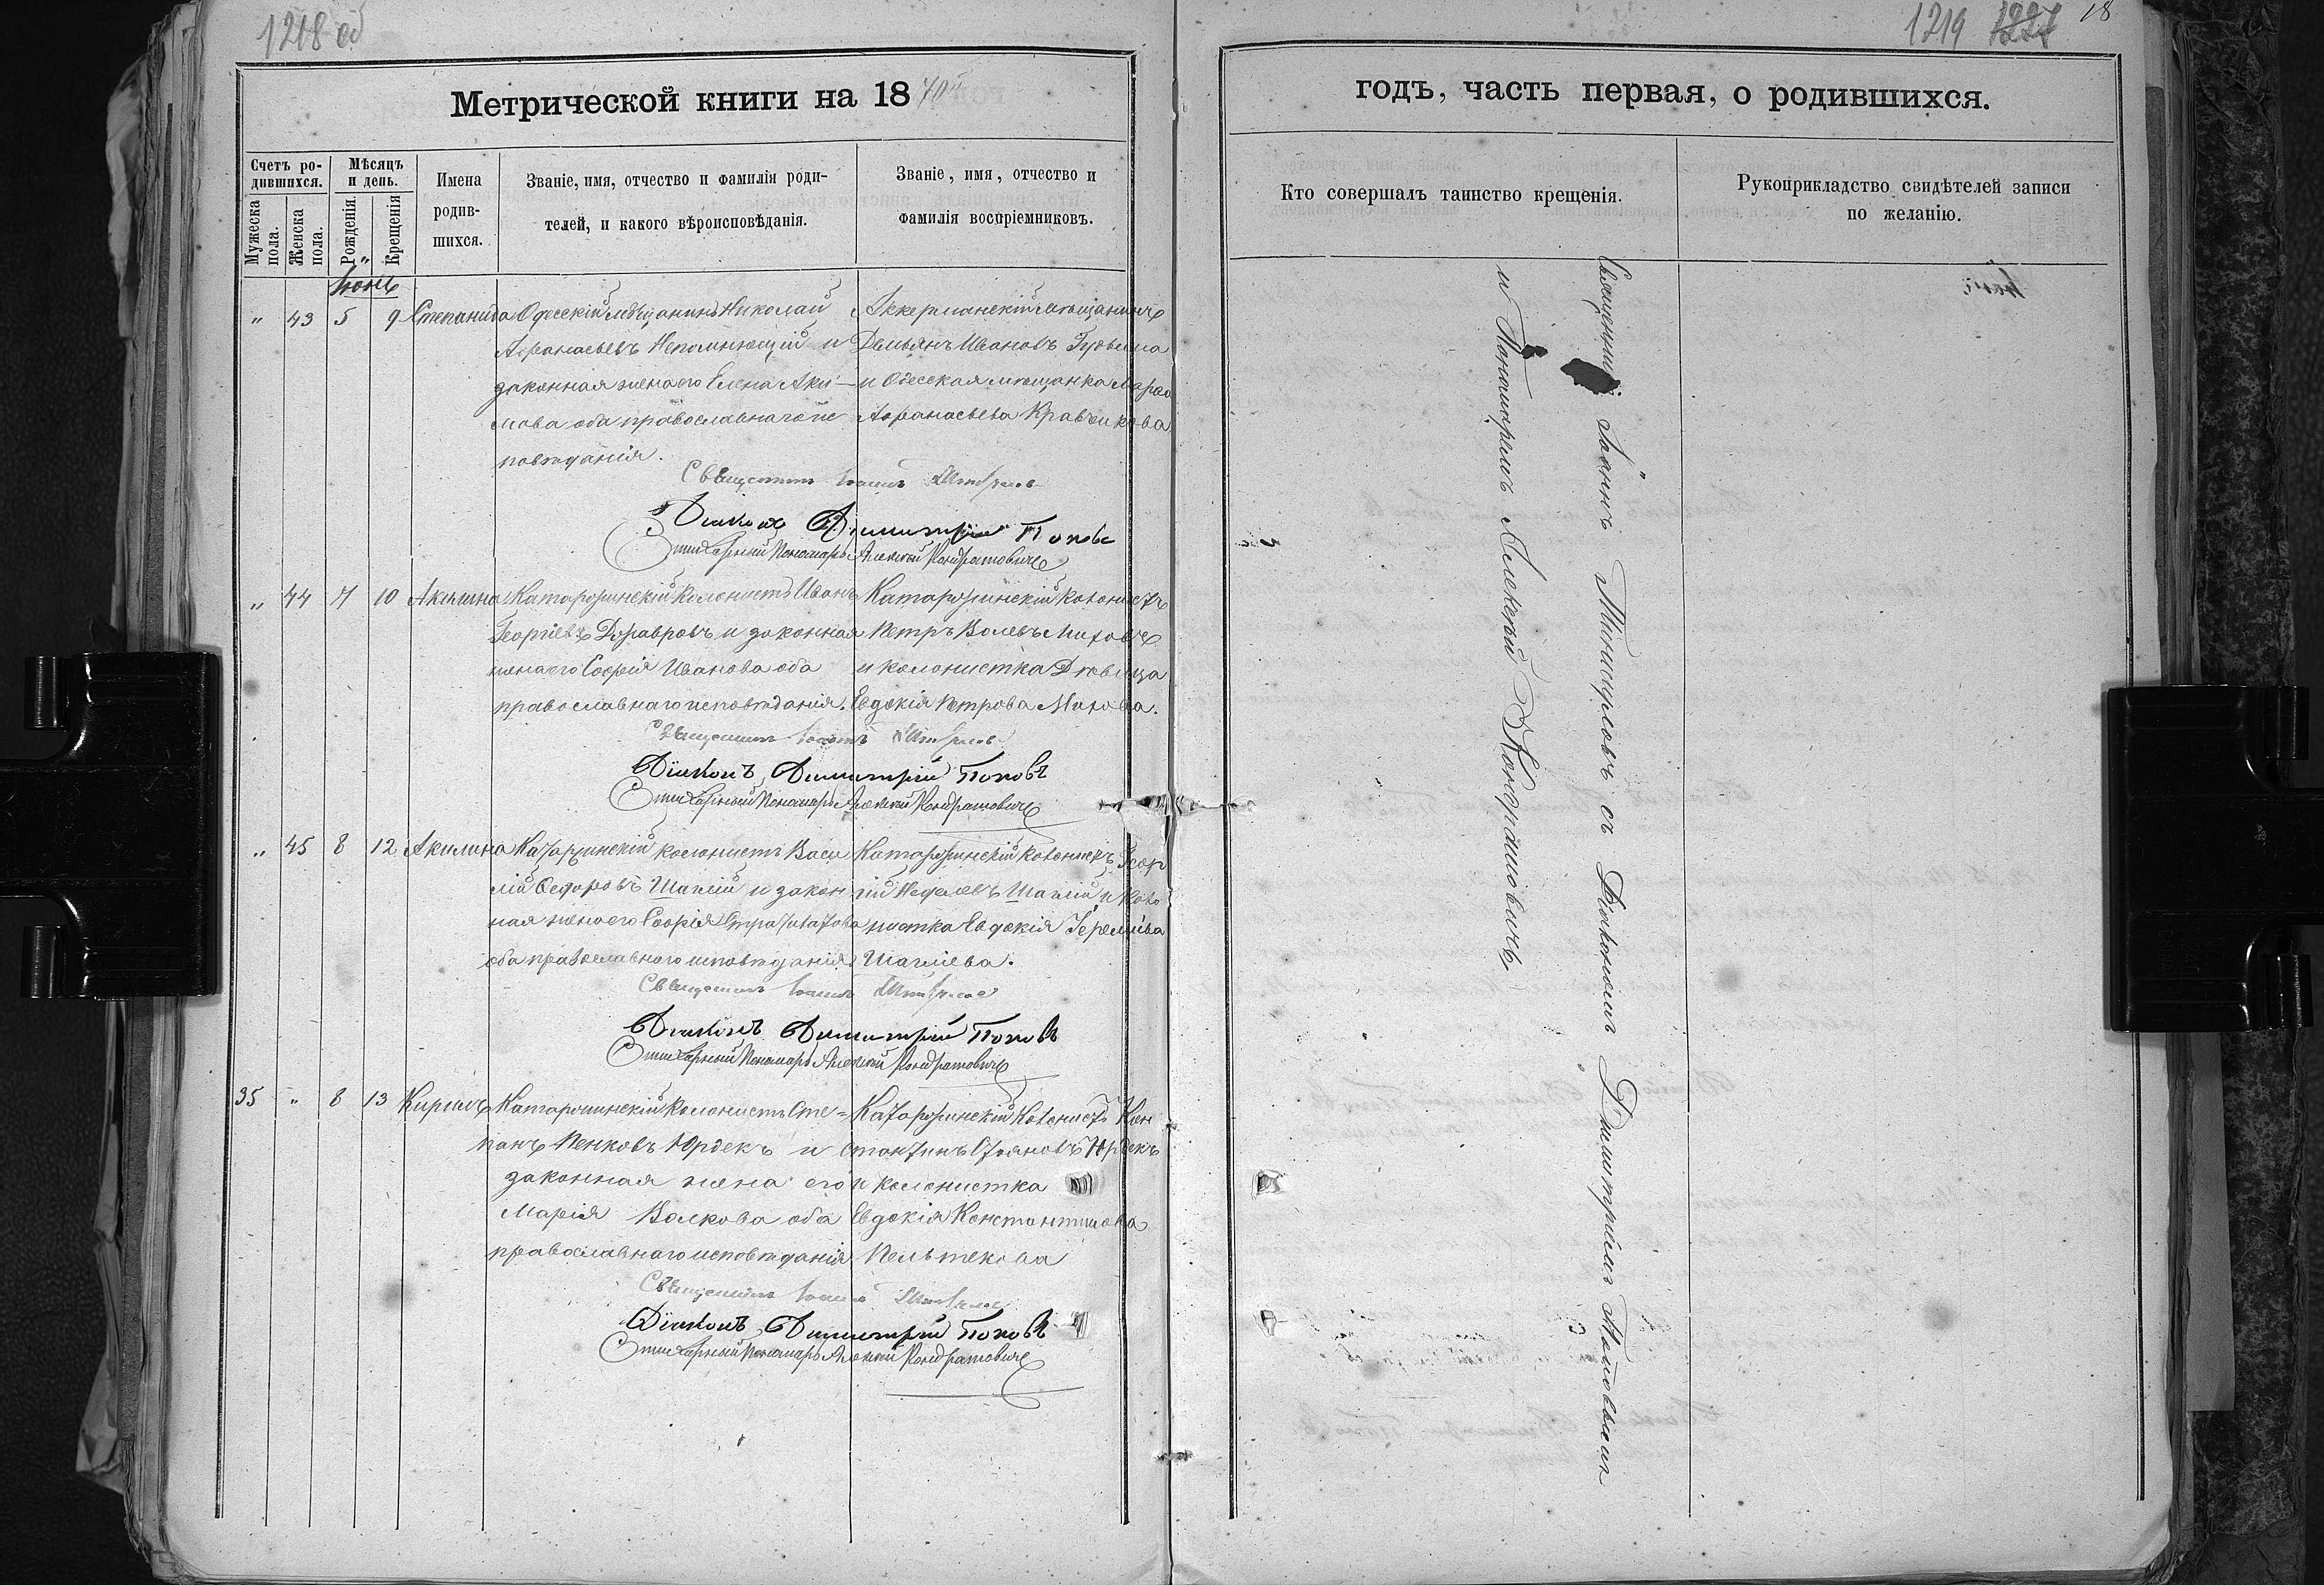 1218 об
Метрической книги на 1870й
Счетъ родившихся.
Мѣсяцъ и день.
Имена родившихся.
Званіе, имя, отчество и фамилія родителей, и какого вѣроисповѣданія.
Званіе, имя, отчество и фамилія воспріемниковъ.
Мужеска пола.
Женска пола.
Рожденія.
Крещенія
Іюнь
" 43 5 9 Степанида Одесскій мѣщанинъ Николай Аккерманскій мѣщанинъ
Афанасьевъ Непомнющій и Демьянъ Ивановъ
законная жена его Елена Аки- и Одесская мѣщанка
мова оба православнаго ис Афанасьева Кравчикова
повѣданія.
Священникъ Іоаннъ
Діаконъ Димитрій Поповъ
Стихарный Пономарь Алексѣй Кондратовичъ
" 44 7 10 Акилина Катаржинскій колонистъ Иванъ Катаржинскій колонистъ
Георгіевъ и законная Петръ Волевъ Митовъ
жена его Софія Иванова оба и колонистка Дѣвица
православнаго исповѣданія. Евдокія Петрова Митова.
Священникъ Іоаннъ
Діаконъ Димитрій Поповъ
Стихарный Пономарь Алексѣй Кондратовичъ
" 45 8 12 Акилина Катаржинскій колонистъ Васи Катаржинскій колонистъ Геор
лій Федоровъ Шаплій и закон гій Шаплій и коло
ная жена его Софія нистка Евдокія
оба православного исповѣданія Шапліева.
Священникъ Іоаннъ
Діаконъ Димитрій Поповъ
Стихарный Пономарь Алексѣй Кондратовичъ
35 " 8 13 Кирилъ Катаржинскій колонистъ Сте= Катаржинскій колонистъ Кон
панъ Пенковъ Юрдекъ и стантинъ Стояновъ Юрдекъ
законная жена его и колонистка
Марія Волкова оба Евдокія Константинова
православнаго исповѣданія Пельтекова
Священникъ Іоаннъ
Діаконъ Димитрій Поповъ
Стихарный Пономарь Алексѣй Кондратовичъ
1219 18
годъ, часть первая, о родившихся.
Кто совершалъ таинство крещенія.
Рукоприкладство свидѣтелей записи по желанію.
Священникъ Іоаннъ съ Діакономъ Димитріемъ Поповымъ
и Пономаремъ Алексѣй Кондратовичъ